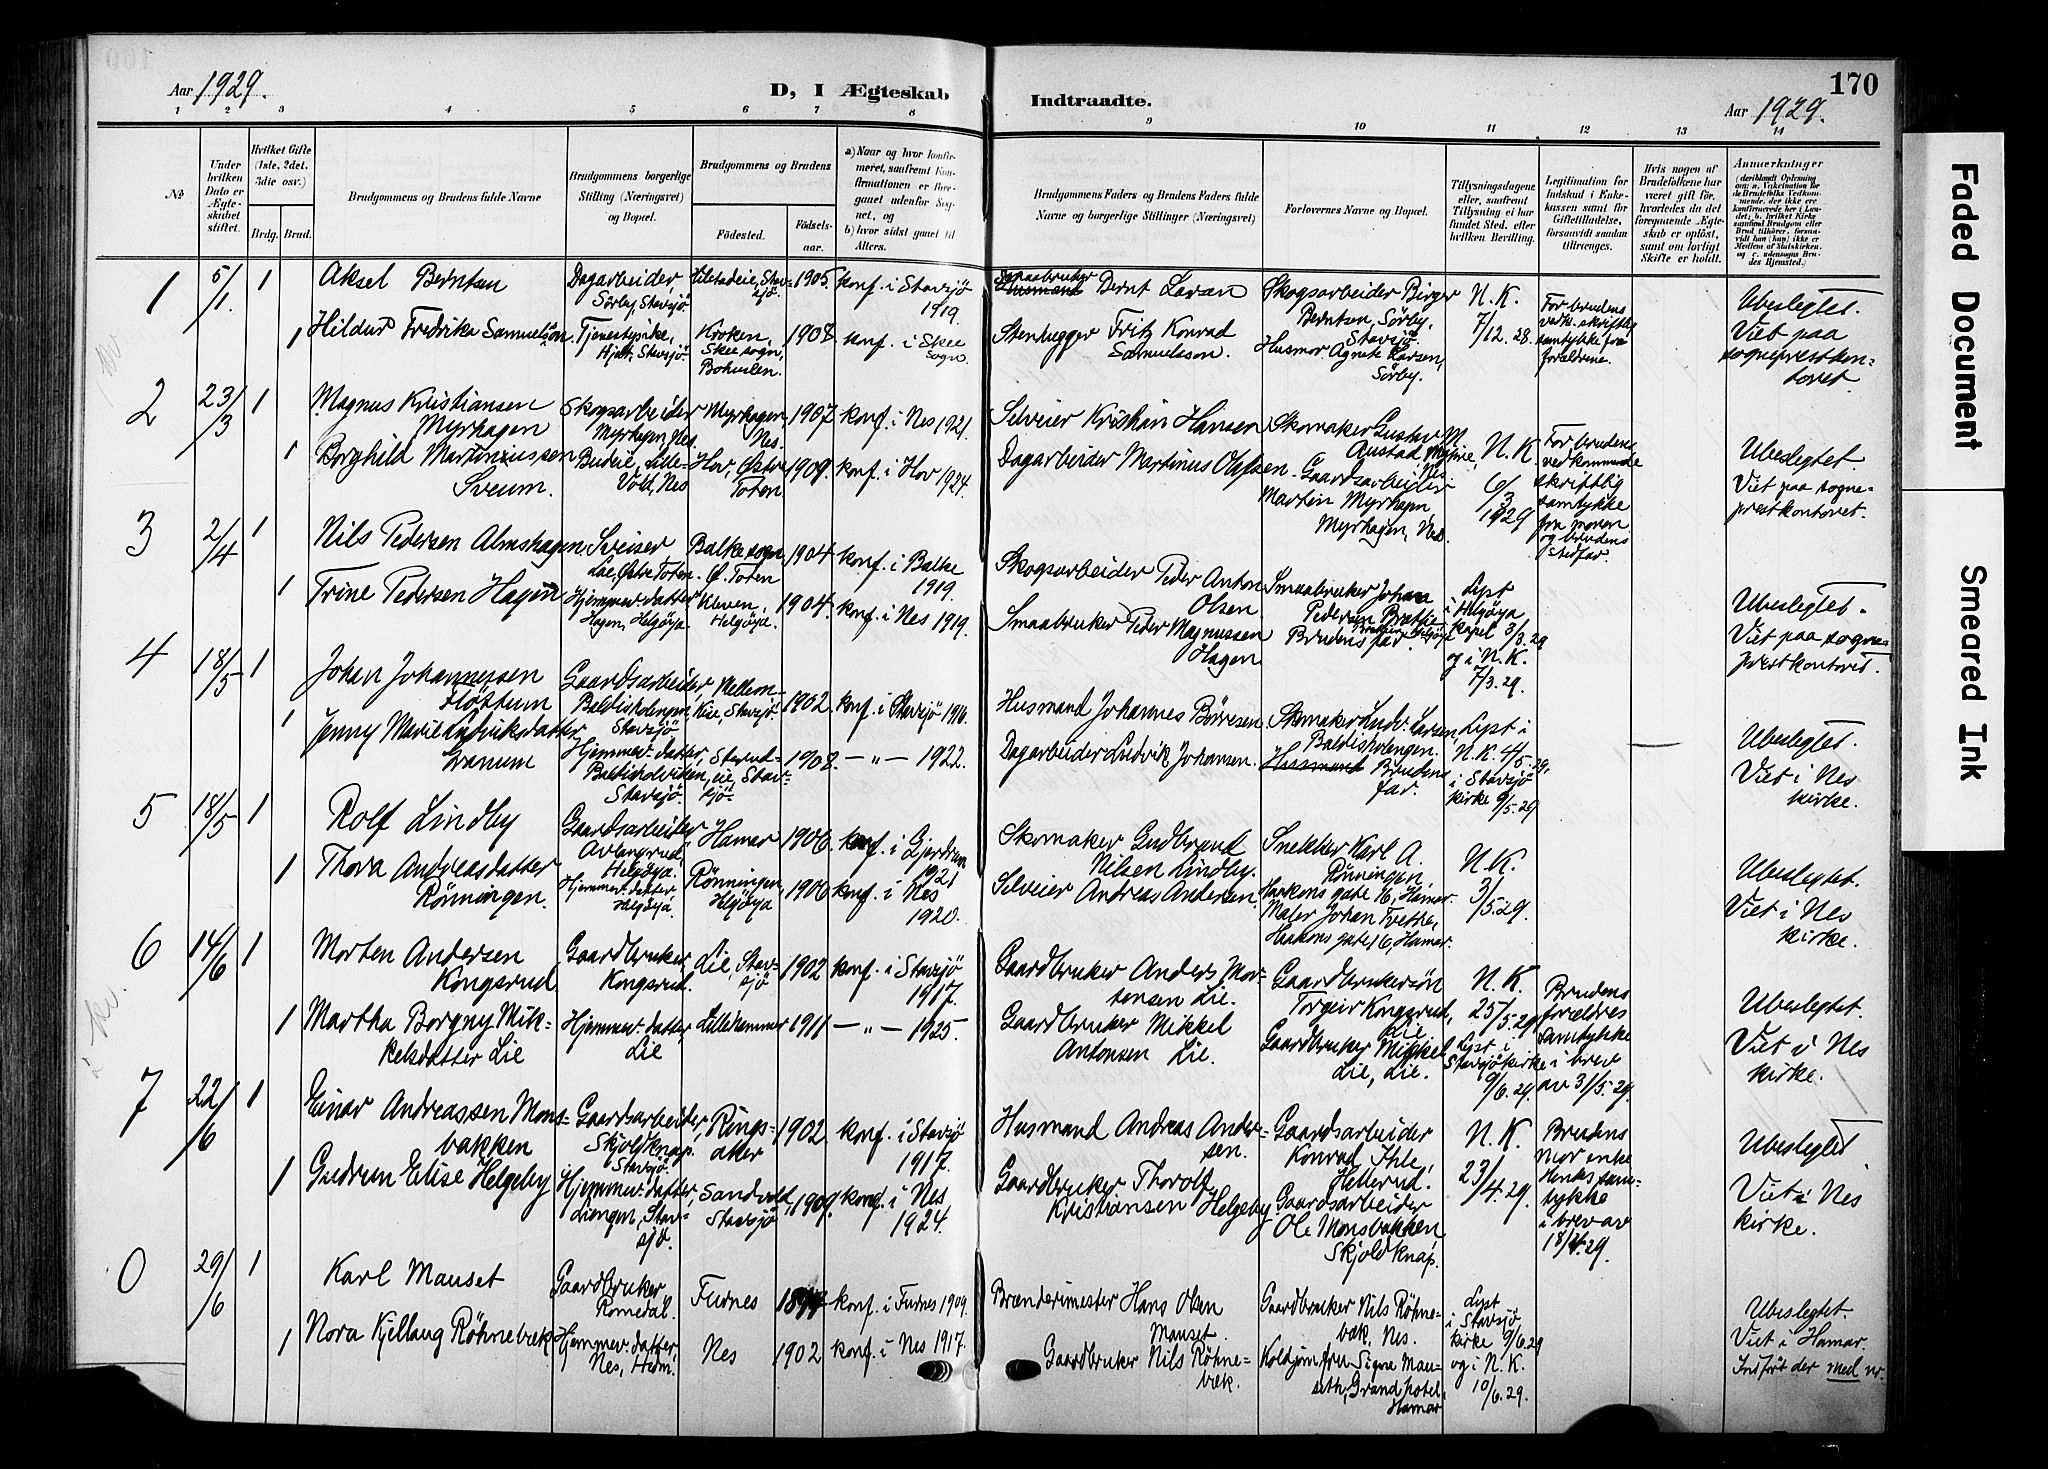 170
Aar 1929.
D, I Ægteskab
Indtraadte.
Aar 1929.
1 2 3 4 5 6 7 8 9 10 11 12 13 14
No
Under hvilken Dato er Ægteskabet stiftet.
Hvilket Gifte (1ste, 2det, 3die osv.)
Brdg. Brud.
Brudgommens og Brudens fulde Navne
Brudgommens borgerlige Stilling (Næringsvei) og Bopæl.
Brudgommens og Brudens
Fødested.
Fødselsaar.
a) Naar og hvor konfirmeret, saafremt Konfirmationen er foregaaet udenfor Sognet, og
b) hvor sidst gaaet til Alters.
Brudgommens Faders og Brudens Faders fulde Navne og borgerlige Stillinger (Næringsvei)
Forlovernes Navne og Bopæl.
Tillysningsdagene eller, saafremt Tillysning ei har fundet Sted, efter hvilken Bevilling.
Legitimation for Indskud i Enkekassen samt for Giftetilladelse, forsaavidt saadan tiltrænges.
Hvis nogen af Brudefolkene har været gift før, hvorledes da det foregaaende Ægteskab er opløst, samt om lovligt Skifte er holdt.
Anmerkninger
(deriblandt Oplysning om: a. Vakcination for de Brudefolks Vedkommende, der ikke ere konfirmerede her i Landet; b. hvilket Kirkesamfund Brudgom eller Brud tilhører, forsaavidt han (hun) ikke er Medlem af Statskirken, og c. udensogns Brudes Hjemsted.)
1 5/1. 1 Aksel Berntsen
Dagarbeider, Sørby, Stavsjö.
1905.
konf. i Stavsjö 1919.
Smaabruker Husmand Bernt Larsen
Skogsarbeider Birger Berntsen, Sørby, Stavsjö
N. K. 7/12. 28.
For brudens vedk. skriftlig samtykke fra foreldrene.
Ubeslegtet. Viet paa sogneprestkontoret
1 Hildur Fredrika Samuelson.
Tjenestepike, Hjelt, Stavsjö.
Kroken, Skee sogn, Bohuslen.
1908
konf. i Skee sogn.
Stenhugger Fritz Konrad Samuelsson.
Husmor Agnete Larsen, Sörby.
2 23/3 1 Magnus Kristiansen Myrhagen
Skogsarbeider Myrhagen, Nes.
Myrhagen, Nes.
1907
konf. i Nes 1921.
Selveier Kristian Hansen
Skomaker Gustav M. Austad, Myhre, Nes
N. K. 6/3 1929
For brudens vedkommende skriftlig samtykke fra moren og brudens stedfar.
Ubeslegtet. Viet paa sogneprestkontoret.
1 Borghild Martiniussen Sveum.
Budeie, Lille-Vold, Nes
Hov, Østre Toten
1909.
konf. i Hov 1924.
Dagarbeider Martinus Olsen.
Gaardsarbeider Martin Myrhagen, Myrhagen, Nes.
3 2/4 1 Nils Pedersen Almshagen
Sveiser Lie, Østre Toten.
Balke sogn, Ø. Toten
1904
konf. i Balke 1919.
Skogsarbeider Peder Anton Olsen
Smaabruker Johan Pedersen
Lyst i Helgöya kapel 3/3. 29 og i N. K. 7/3. 29.
Ubeslegtet. Viet paa sogneprestkontoret.
1 Trine Pedersen Hagen
Hjemmev. datter Hagen, Helgöya.
Kleven, Helgöya.
1904.
konf. i Nes 1919.
Smaabruker Peder Magnussen Hagen
Brudens far.
4 18/5 1 Johan Johannessen Fløttum
Gaardsarbeider, Baldisholengen, Stavsjö
Stavsjö.
1902.
konf. i Stavsjö 1916.
Husmand Johannes Börresen
Skomaker Ludv. Larsen, Baldisholengen.
Lyst i N. K. 4/5. 29. i Stavsjö kirke 9/5. 29
Ubeslegtet. Viet i Nes kirke.
1 Jenny Marie Ludviksdatter Granum
Hjemmev. datter, Baldisholviken, Stavsjö.
Stavsjö.
1908.
— „ — 1922.
Dagarbeider Ludvik Johansen.
Husmand Brudens far.
5 18/5 1 Rolf Lindby
Gaardsarbeider Avlangrud, Helgöya.
Hamar
1906
konf. i Gjerdrum 1921
Skomaker Gudbrand Nilsen Lindby.
Snekker Karl A. Rönningen, Haakons gate 16, Hamar.
N. K. 3/5. 29.
Ubeslegtet. Viet i Nes kirke.
1 Thora Andreasdatter Rönningen.
Hjemmev. datter Helgöya.
Rönningen, Helgöya
1906
konf. i Nes 1920.
Selveier Andreas Andersen.
Maler Johan Frethe, Haakons gate 16, Hamar.
6 14/6 1 Morten Andersen Kongsrud
Gaardbruker, Kongsrud.
Lie, Stavsjö
1902
konf. i Stavsjö 1917.
Gaardbruker Anders Mortensen Lie.
Gaardbrukersön Torgeir Kongsrud, Lie
N. K. 25/5. 29 Lyst i Stavsjö kirke 9/6. 29.
Brudens forældres samtykke i brev av 31/5. 29.
Ubeslegtet. Viet i Nes kirke.
1 Martha Borgny Mikkelsdatter Lie
Hjemmev. datter, Lie
Lillehammer
1911
— „ — 1925.
Gaardbruker Mikkel Antonsen Lie.
Gaardbruker Mikkel Lie, Lie.
7 22/6 1 Einar Andreassen Monsbakken
Gaardsarbeider, Skjoldknap, Stavsjö.
Ringsaker
1902
konf. i Stavsjö 1917.
Husmand Andreas Andersen.
Gaardsarbeider Konrad Ihle, Hellerud.
N. K. 23/4. 29.
Brudens mor enke Henks samtykke i brev av 18/4. 29.
Ubeslegtet. Viet i Nes kirke.
1 Gudrun Elise Helgeby
Hjemmev. datter, Liengen, Stavsjö.
Sandvold, Stavsjö
1909.
konf. i Nes 1924.
Gaardbruker Thorolf Kristiansen Helgeby
Gaardsarbeider Ole Monsbakken, Skjoldknap.
0 29/6 1 Karl Mauset
Gaardbruker Romedal.
Furnes
konf. i Furnes 1909.
Brænderimester Hans Olsen Mauset.
Gaardbruker Nils Röhnebæk, Nes.
Lyst i Stavsjö kirke 9/6. 29 og i N. K. 10/6. 29.
Ubeslegtet. Viet i Hamar. Indfört der med nr.
1 Nora Kjellaug Röhnebæk
Hjemmev. datter, Nes, Hedm.
Nes
1902
konf. i Nes 1917.
Gaardbruker Nils Röhnebæk.
Signe Mauseth, Grand hotel, Hamar
Faded Document
Smeared Ink